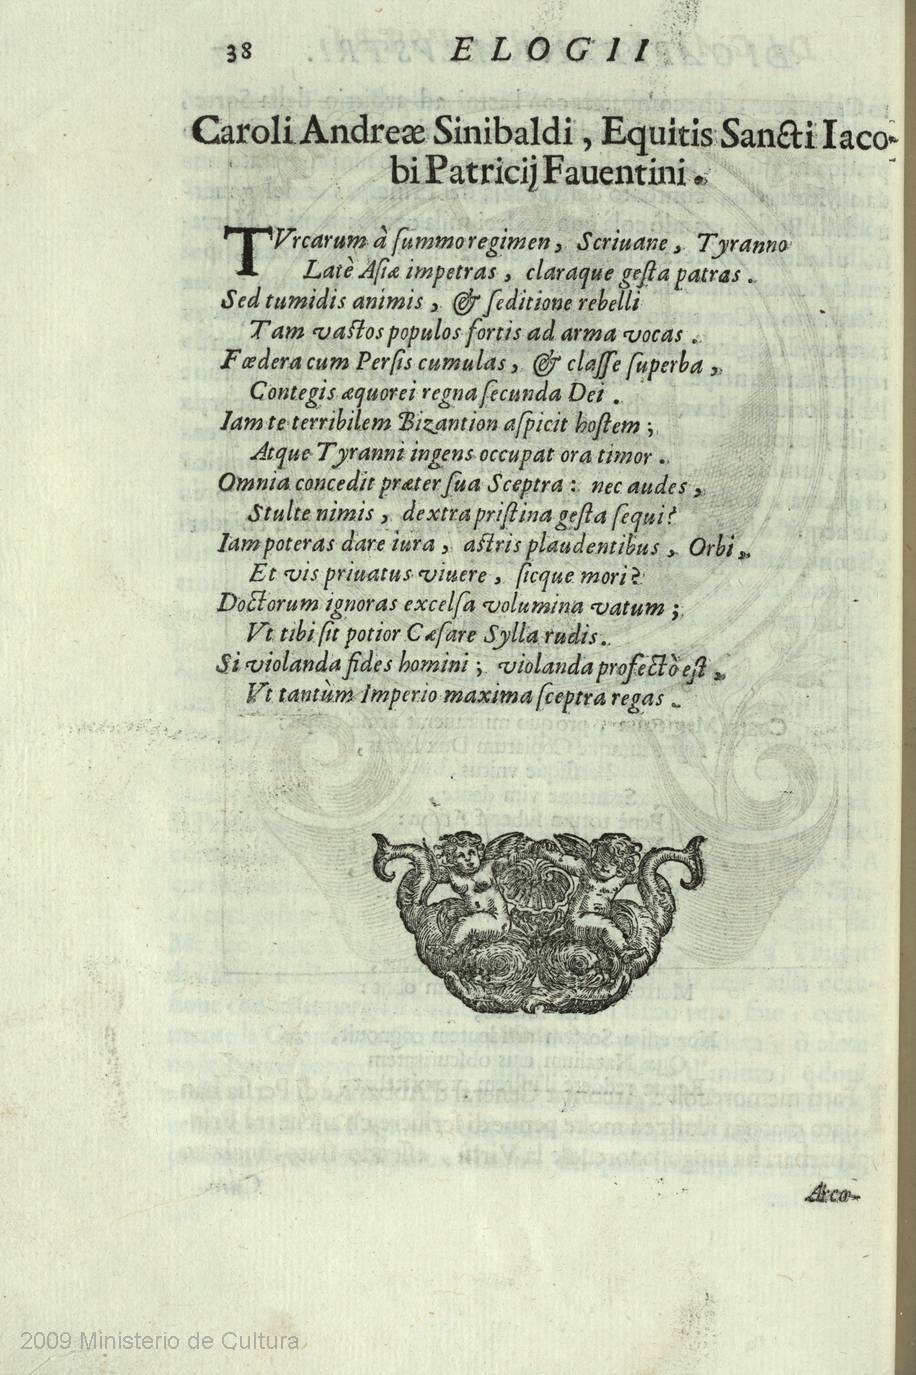 38 ELOGII
Caroli Andreæ Sinibaldi, Equitis Sancti Iaco-
bi Patricij Fauentini.
TVrcarum à ſummo regimen, Scriuane, Tyranno
Latè Aſiæ impetras, claraque geſta patras.
Sed tumidis animis, & ſeditione rebelli
Tam vaſtos populos fortis ad arma vocas.
Fœdera cum Perſis cumulas, & claſſe ſuperba,
Contegis æquorei regna ſecunda Dei.
Iam te terribilem Bizantion aſpicit hoſtem;
Atque Tyranni ingens occupat ora timor.
Omnia concedit præter ſua Sceptra: nec audes,
Stulte nimis, dextra priſtina geſta ſequi?
Iam poteras dare iura, aſtris plaudentibus, Orbi,
Et vis priuatus viuere, ſicque mori?
Doctorum ignoras excelſa volumina vatum;
Vt tibi ſit potior Cæſare Sylla rudis.
Si violanda fides homini; violanda profectò eſt,
Vt tantùm Imperio maxima ſceptra regas.
Arco-
2009 Ministerio de Cultura